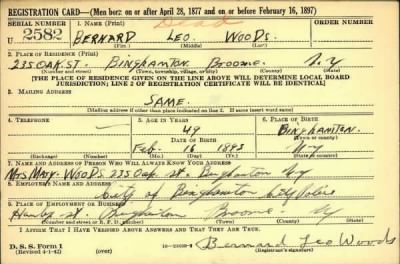 REGISTRATION CARD—(Men born on or after April 28, 1877 and on or before February 16, 1897)
SERIAL NUMBER 1. NAME (Print) Dead ORDER NUMBER
U 2582 BERNARD LEO WOODS.
(First) (Middle) (Last)
2. PLACE OF RESIDENCE (Print)
235 OAK ST. BINGHAMTON BROOME. N.Y
(Number and street) (Town, township, village, or city) (County) (State)
[THE PLACE OF RESIDENCE GIVEN ON THE LINE ABOVE WILL DETERMINE LOCAL BOARD
JURISDICTION; LINE 2 OF REGISTRATION CERTIFICATE WILL BE IDENTICAL]
3. MAILING ADDRESS
SAME.
[Mailing address if other than place indicated on line 2. If same insert word same]
4. TELEPHONE 5. AGE IN YEARS 6. PLACE OF BIRTH
49 BINGHAMTON.
DATE OF BIRTH (Town or county)
Feb. 16 1893 N.Y
(Exchange) (Number) (Mo.) (Day) (Yr.) (State or country)
7. NAME AND ADDRESS OF PERSON WHO WILL ALWAYS KNOW YOUR ADDRESS
Mrs MARY WOODS 235 Oak St. Binghamton Ny
8. EMPLOYER'S NAME AND ADDRESS
City of Binghamton City Police
9. PLACE OF EMPLOYMENT OR BUSINESS
St. Binghamton Broome. Ny
(Number and street or R. F. D. number) (Town) (County) (State)
I AFFIRM THAT I HAVE VERIFIED ABOVE ANSWERS AND THAT THEY ARE TRUE.
D. S. S. Form 1
(Revised 4-1-42) Bernard Leo Woods
(Registrant's signature)